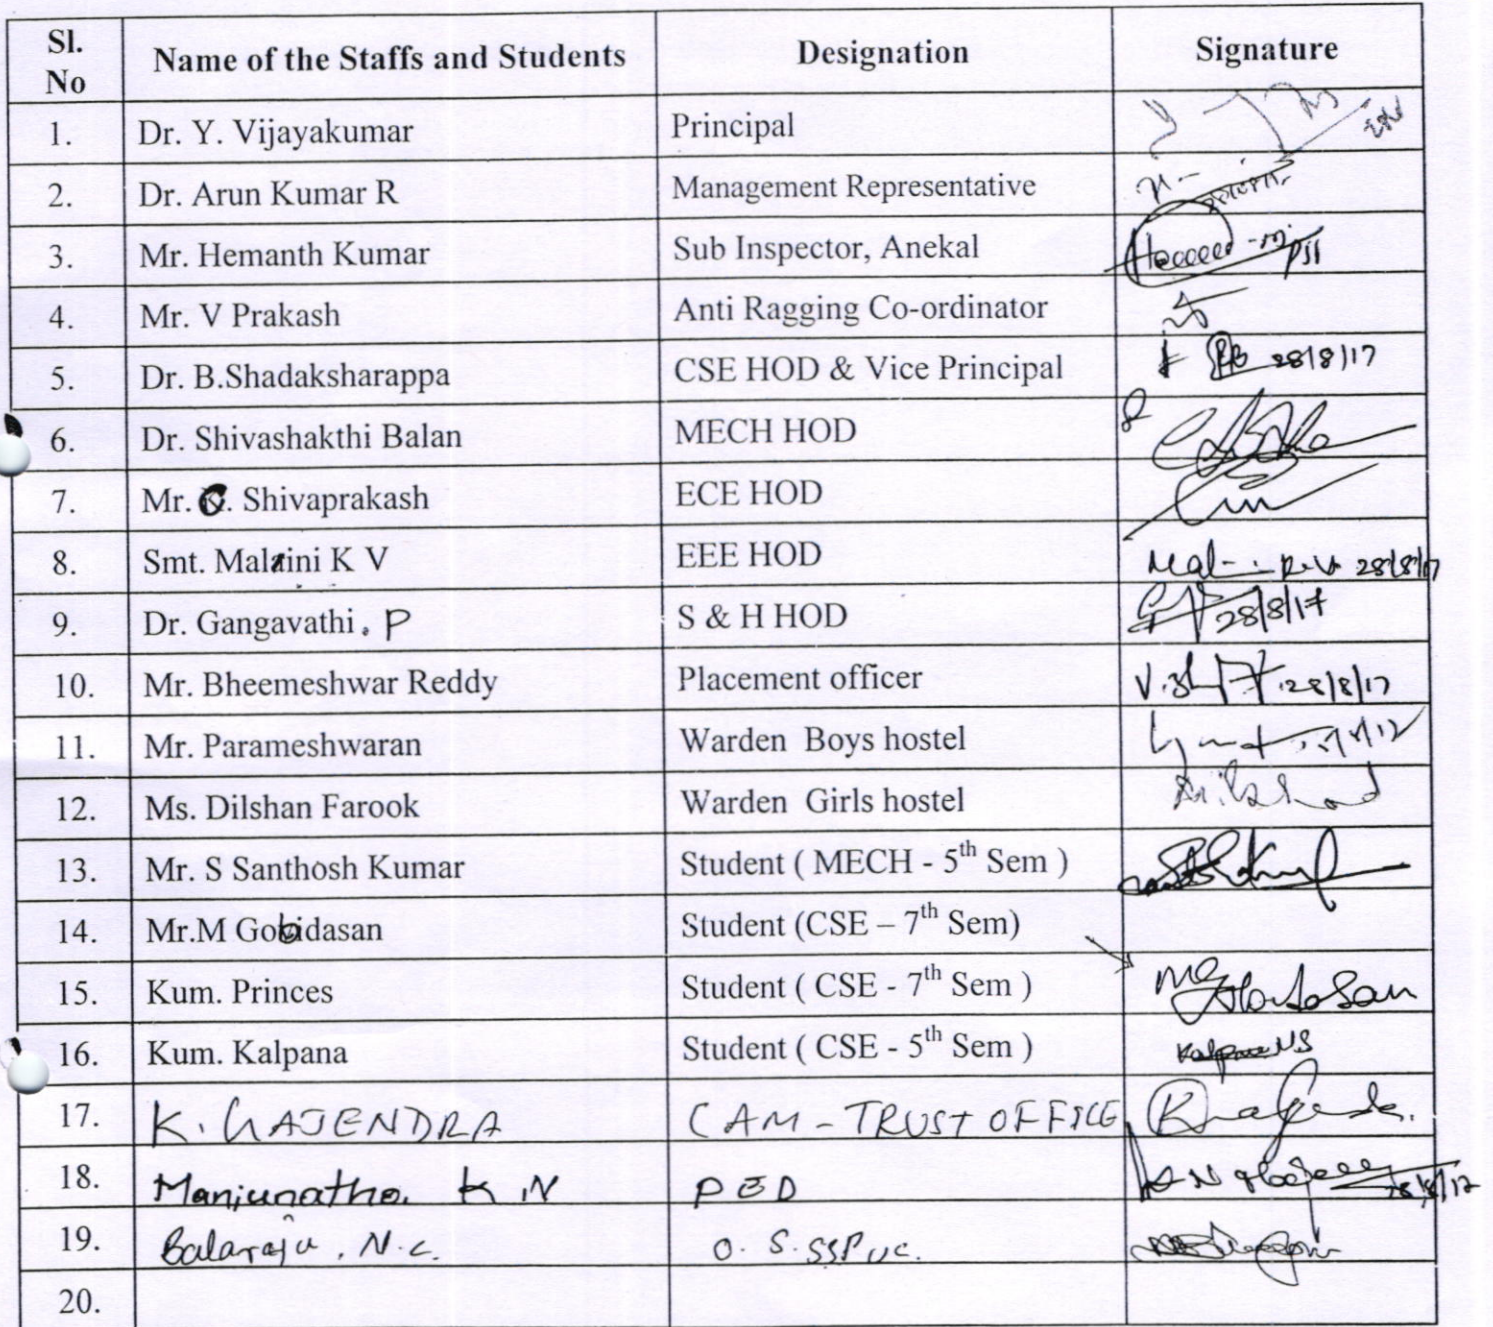 Sl. No Name of the Staffs and Students Designation Signature
1. Dr. Y. Vijayakumar Principal
2. Dr. Arun Kumar R Management Representative
3. Mr. Hemanth Kumar Sub Inspector, Anekal PSI
4. Mr. V Prakash Anti Ragging Co-ordinator
5. Dr. B.Shadaksharappa CSE HOD & Vice Principal 28/8/17
6. Dr. Shivashakthi Balan MECH HOD
7. Mr. C. Shivaprakash ECE HOD
8. Smt. Malini K V EEE HOD 28/8/17
9. Dr. Gangavathi. P S & H HOD 28/8/17
10. Mr. Bheemeshwar Reddy Placement officer 28/8/17
11. Mr. Parameshwaran Warden Boys hostel
12. Ms. Dilshan Farook Warden Girls hostel
13. Mr. S Santhosh Kumar Student ( MECH - 5th Sem )
14. Mr.M Gobidasan Student (CSE – 7th Sem)
15. Kum. Princes Student ( CSE - 7th Sem )
16. Kum. Kalpana Student ( CSE - 5th Sem ) Kalpana N.S
17. K. GAJENDRA CAM - TRUST OFFICE
18. Manjunatha. K.N PED 28/8/17
19. Balaraju. N.C. O. S. SSPUC.
20.